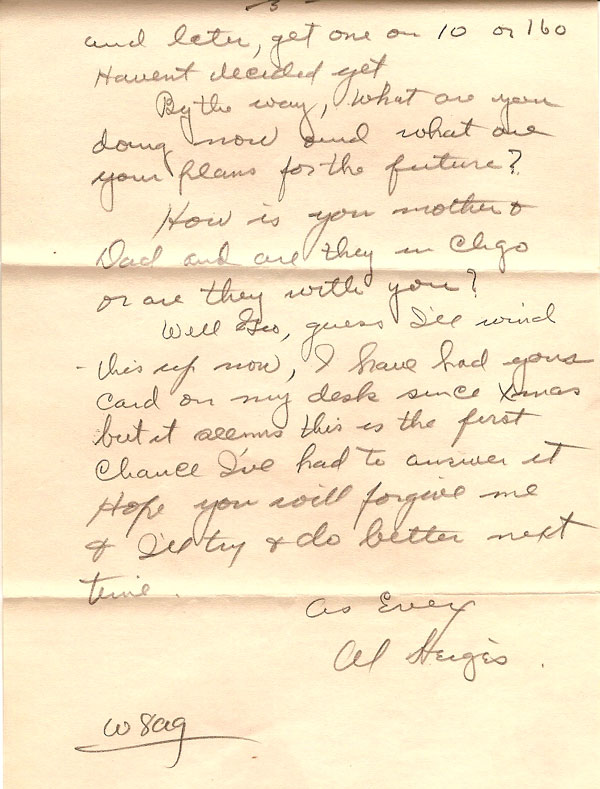 - 3 -
and later, get one on 10 or 160
Havent decided yet
By the way, what are you
doing now and what are
your plans for the future?
How is you mother &
Dad and are they in Chgo
or are they with you?
Well Geo, guess I'll wind
this up now, I have had your
card on my desk since Xmas
but it seems this is the first
chance I've had to answer it
Hope you will forgive me
& I'll try & do better next
time.
As Ever
Al Heiges.
W8ag